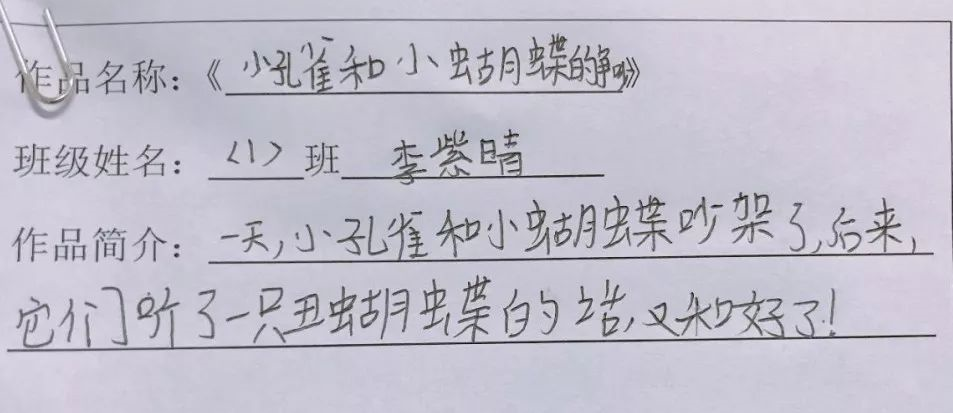 作品名称：《小孔雀和小蝴蝶的争吵》
班级姓名：（1）班 李紫晴
作品简介：一天，小孔雀和小蝴蝶吵架了，后来，
它们听了一只丑蝴蝶的话，又和好了！